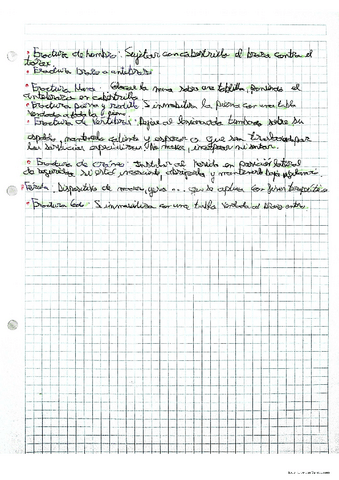 • Fractura de hombro: Sujetar con cabestrillo el brazo contra el
torax.
• Fractura brazo o antebrazo
• Fractura Mano: Colocar la mano sobre una tablilla, poniendo el
antebrazo en cabestrillo
• Fractura pierna y rodilla: Inmoviliza la pierna con una tabla
vendada a toda la pierna
• Fractura de vertebras: Dejar al lesionado tumbado sobre su
espalda, mantenerlo caliente y esperar a que sea trasladado por
los servicios especializados. No mover, incorporar ni sentar.
• Fractura de craneo: Instalar al herido en posición lateral
de seguridad si está inconsciente, abrigarlo y mantenerlo bajo vigilancia.
Ferula: Dispositivo de madera, yeso ... que se aplica con fines terapéuticos
• Fractura codo: Inmoviliza con una tabla vendada al brazo entero.